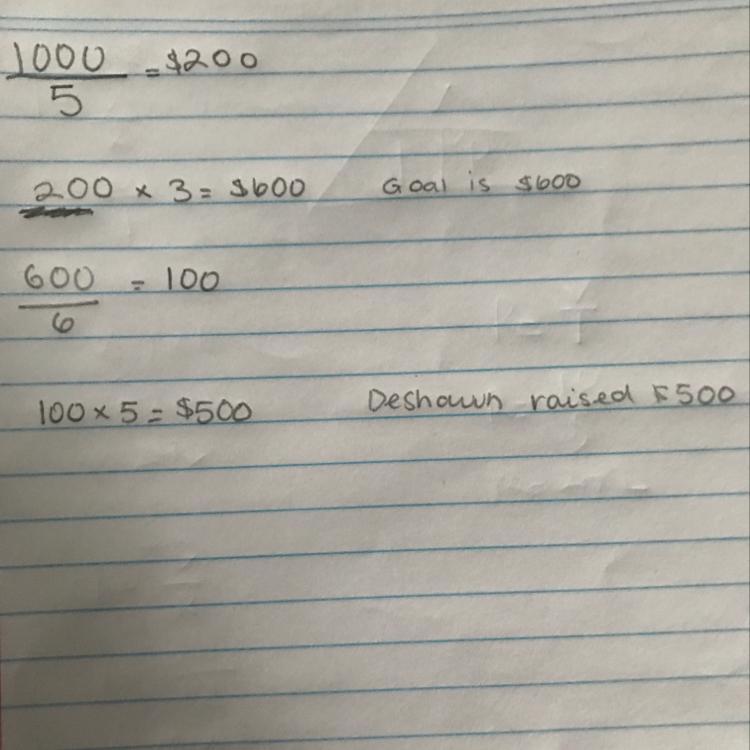 1000/5 = $200
200 × 3 = $600 Goal is $600
600/6 = 100
100 × 5 = $500 Deshawn raised $500